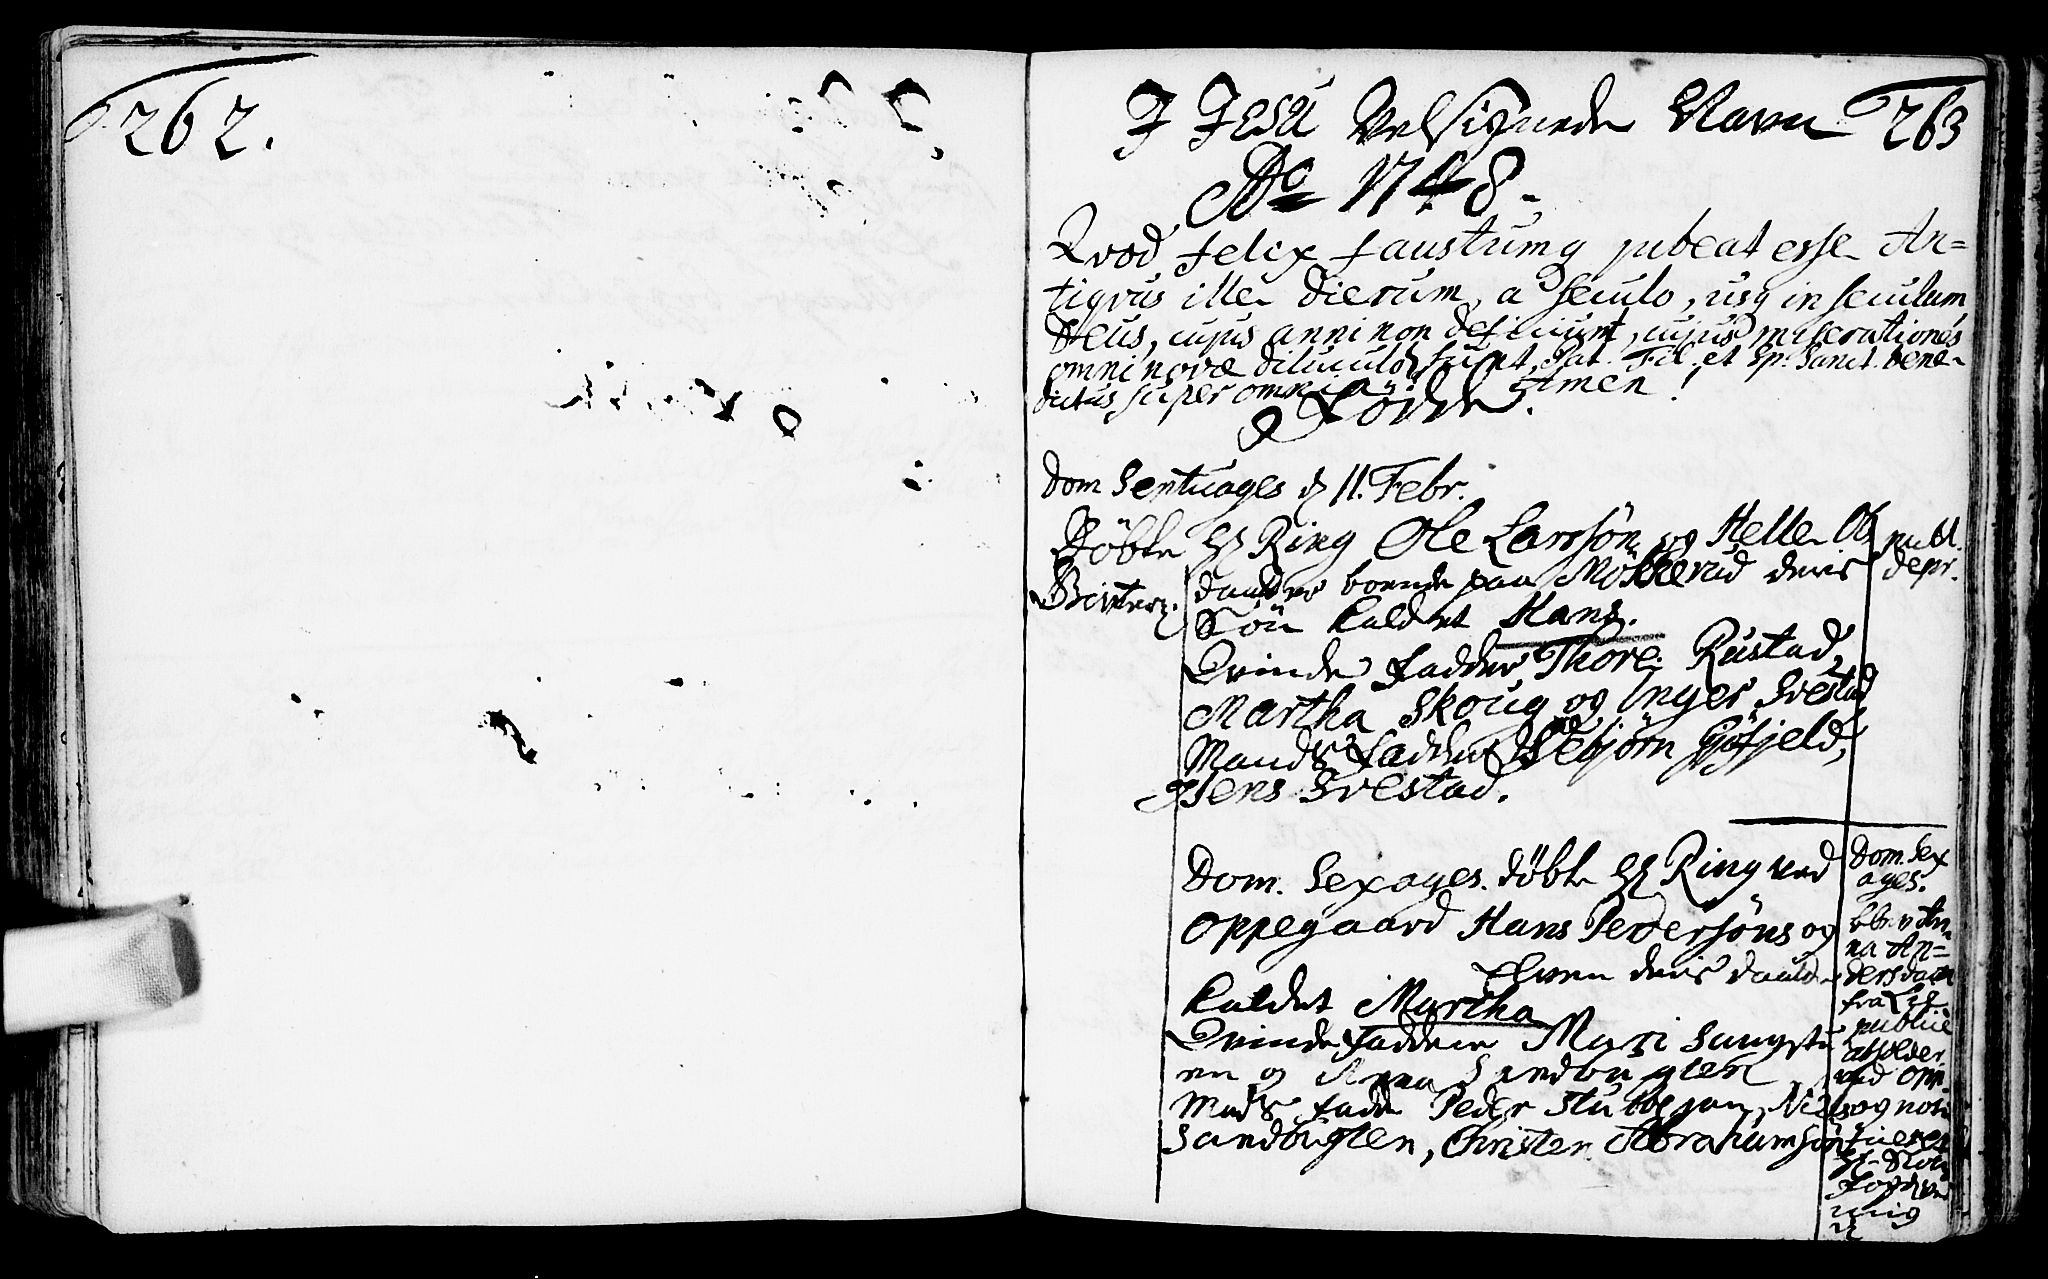 262.
I JESU Velsignede Navn 263
Ao 1748.
Qvod felix faustumq jubeat esse An=
tiqvus ille dierum, a seculo, usq in seculum
Deus, cujus anni non deficiunt, cujus miserationes
omni novæ diluculo sunt, Pat. Fil. et Sp. Sanct. bene-
dictus super omnia. Amen!
Dom Septuages d 11. Febr.
Döbte Hr Ring Ole Larssön og Helle Ols publ.
daatter boende paa Mokkerud deris depr.
Sön kaldet Hans.
Qvinde Fadder Thore Rustad,
Martha Skoug og Inger Svestad
Mands Fadder Gjøfjeld,
Jens Svestad.
Dom. Sexages. döbte Hr Ring ved
Oppegaard Hans Pedersöns og
deris daatter
kaldet Martha
Qvinde Faddere Mari
en og Anna Sandbugten
Mands Fadd Peder Stubljan, Niels
Sandbugten, Christen Abrahamsön
Dom. Sex
ages.
blev An
na An=
dersdatt
fra
public
absolver
ved Opp.